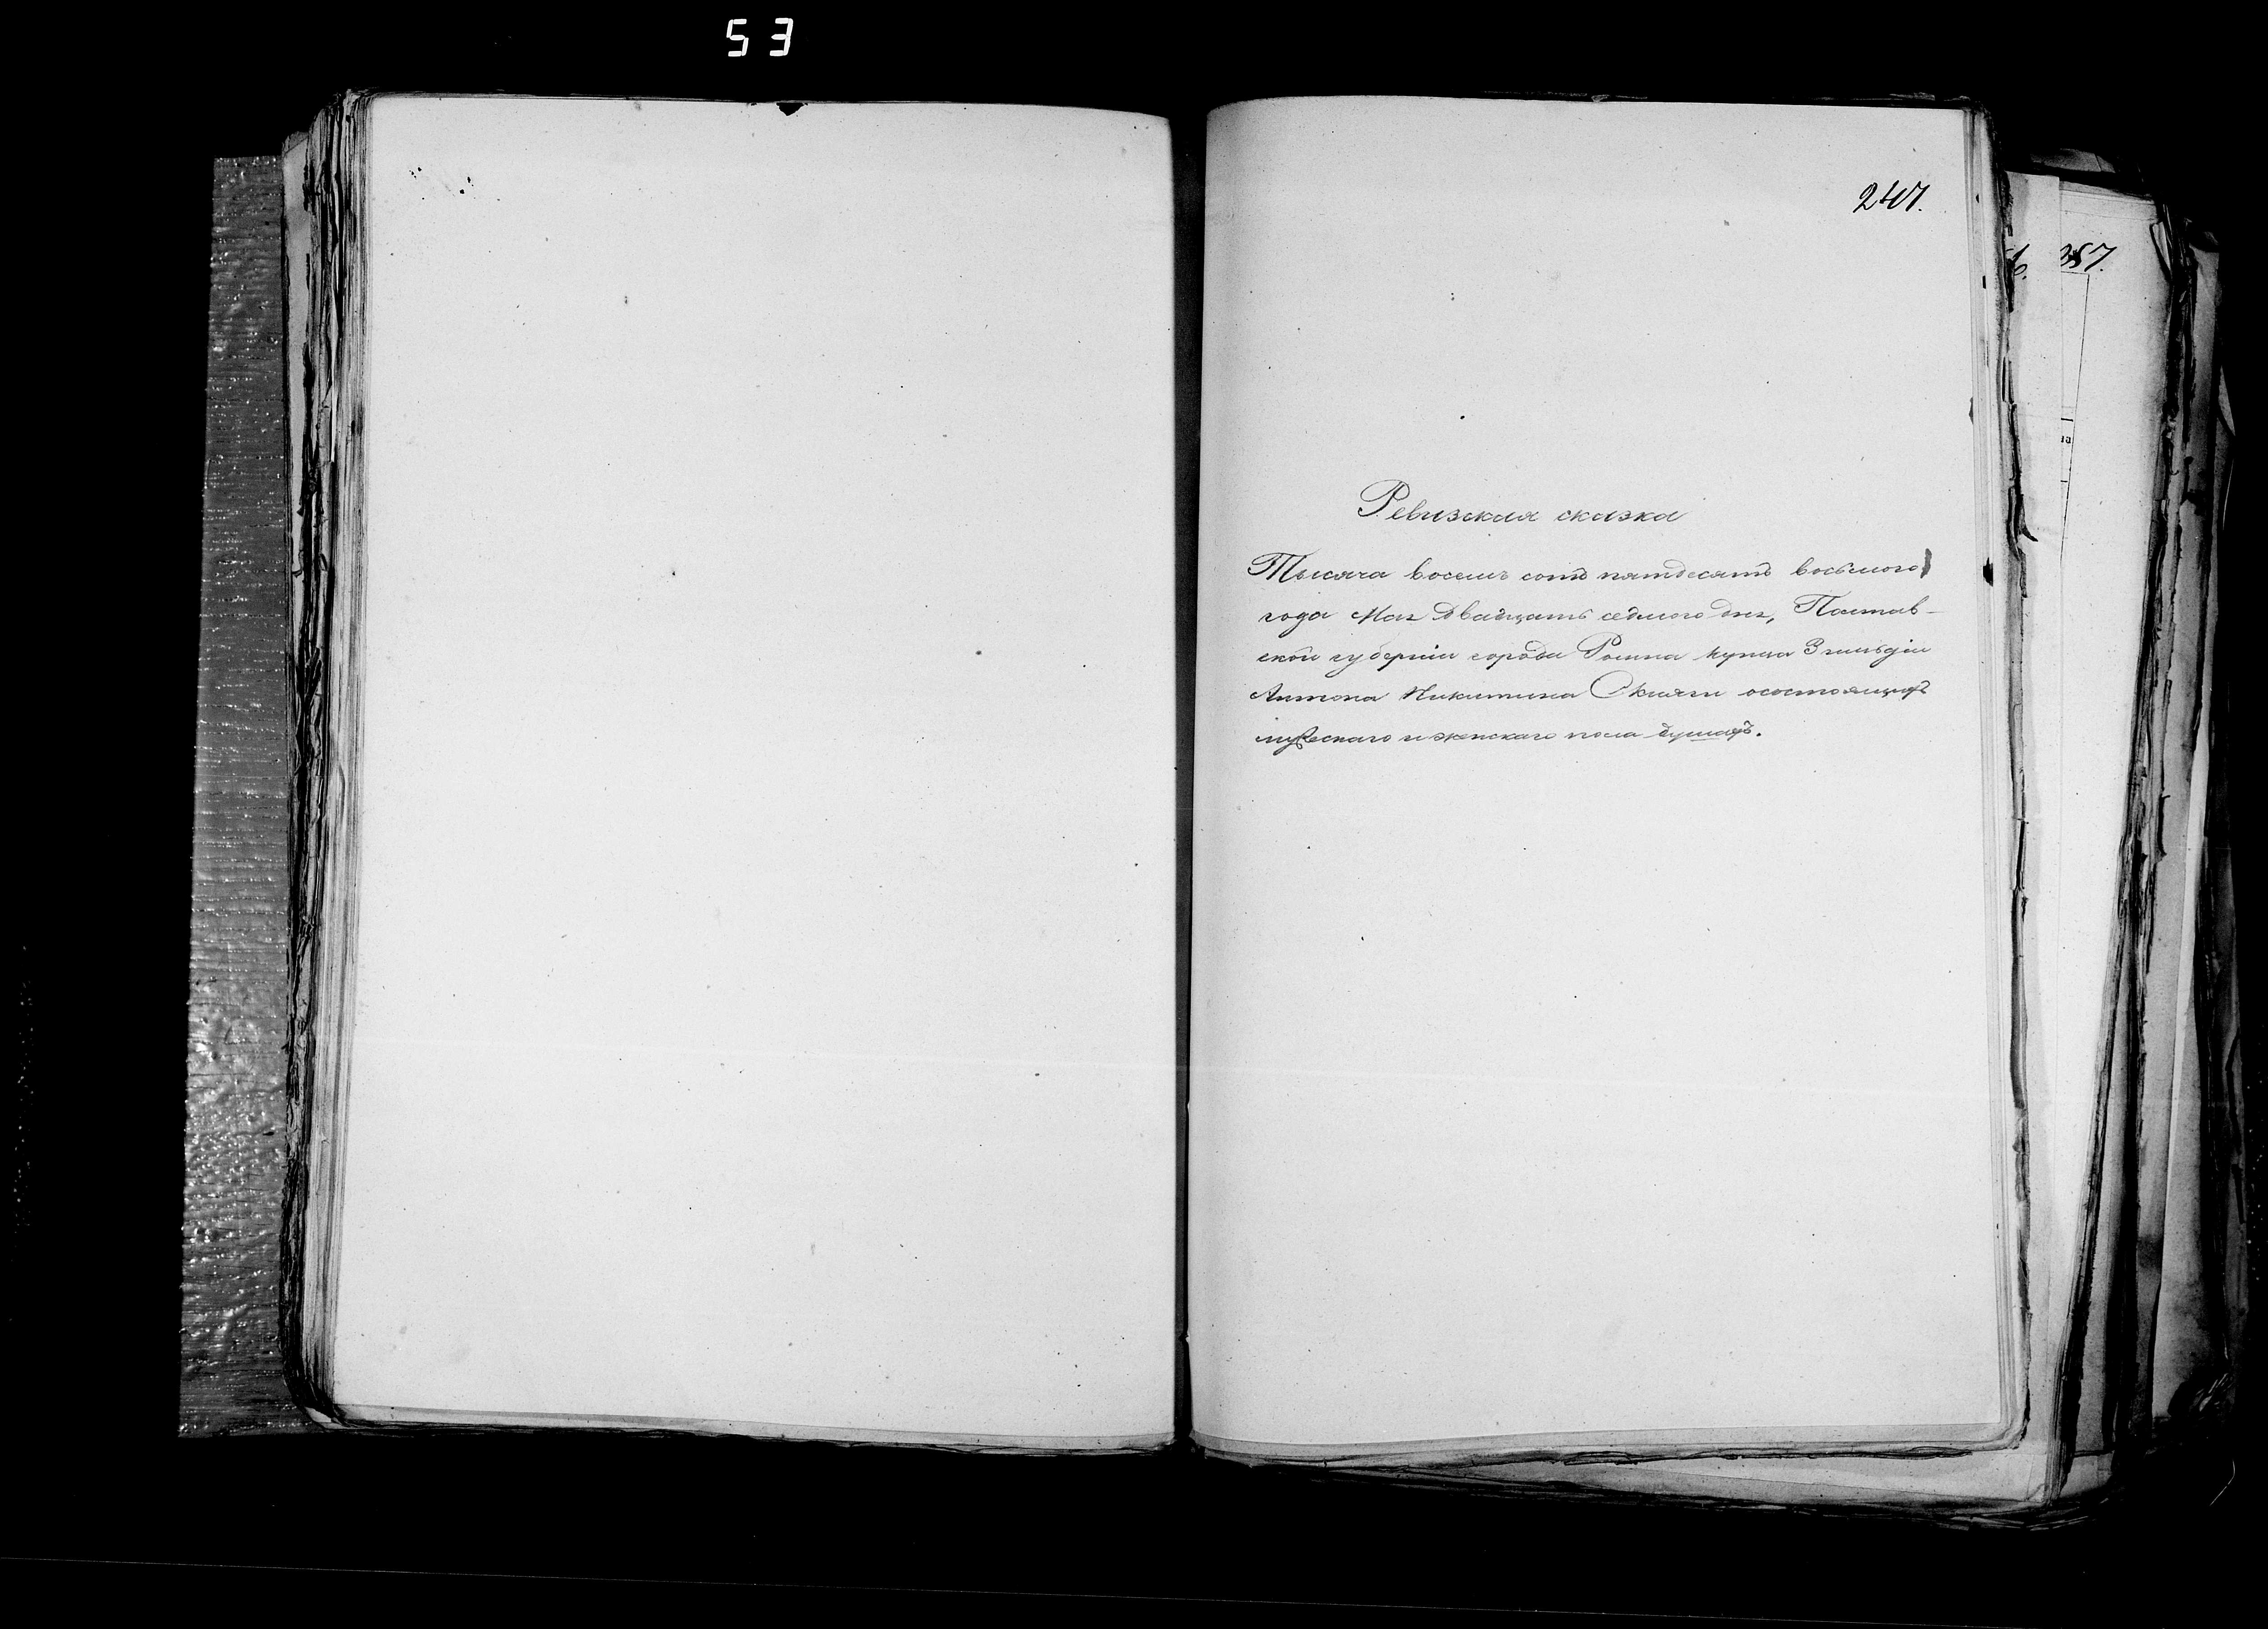 53
247.
357.
Ревизская сказка
Тысяча восемь сотъ пятдесятъ восьмого
года Мая двадцать седмого дня, Полтав-
ской губерніи города Ромна купца 3 гильдіи
Антона Никитина осостоящихъ
мужескаго и женскаго пола душахъ.